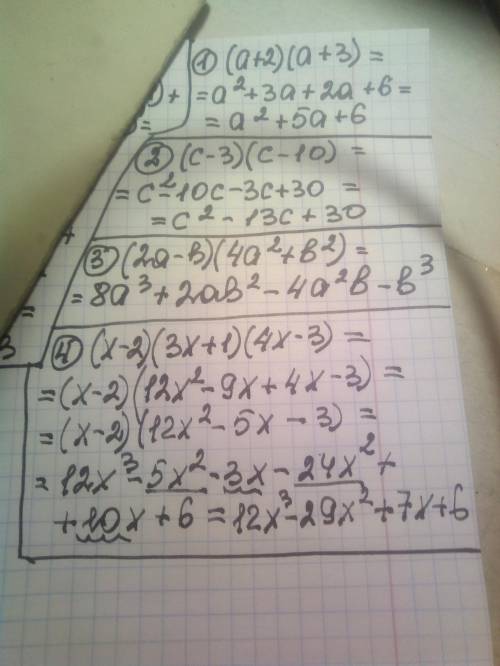 ① (a+2)(a+3) =
) + = a² + 3a + 2a + 6 =
= = a² + 5a + 6
② (c-3)(c-10) =
= c² - 10c - 3c + 30 =
= c² - 13c + 30
+
③ (2a-в)(4a²+в²) =
= = 8a³ + 2aв² - 4a²в - в³
④ (x-2)(3x+1)(4x-3) =
= (x-2)(12x² - 9x + 4x - 3) =
= (x-2)(12x² - 5x - 3) =
= 12x³ - 5x² - 3x - 24x² +
+ 10x + 6 = 12x³ - 29x² + 7x + 6